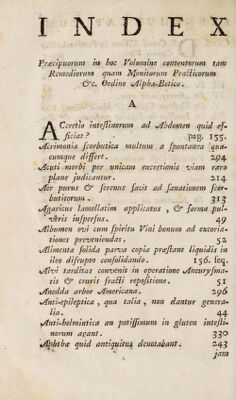 INDEX
Præcipuorum in hoc Volumine contentorum tam
Remediorum quam Monitorum Practicorum
&c. Ordine Alpha-Betico.
A
ACcretio intestinorum ad Abdomen quid ef-
ficiat? pag. 155.
Acrimonia scorbutica multum a spontanea quа-
cumque differt. 294
Acuti morbi per unicam excretionis viam raro
plane judicantur. 214
Aer purus & serenus facit ad sanationem scor-
buticorum. 313
Agaricus lamellatim applicatus, & forma pul-
veris inspersus. 49
Albumen ovi cum spiritu Vini bonum ad excoria-
tiones præveniendas. 52
Alimenta solida parva copia præstant liquidis in
ileo disrupto consolidando. 156. seq.
Alvi tarditas convenit in operatione Aneurysma-
tis & cruris fracti repositione. 51
Anedda arbor Americana. 296
Anti-epileptica, qua talia, non dantur genera-
lia. 44
Anti-helmintica an potissimum in gluten intesti-
norum agant. 330
Aphthæ quid antiquitus denotabant. 243
jam